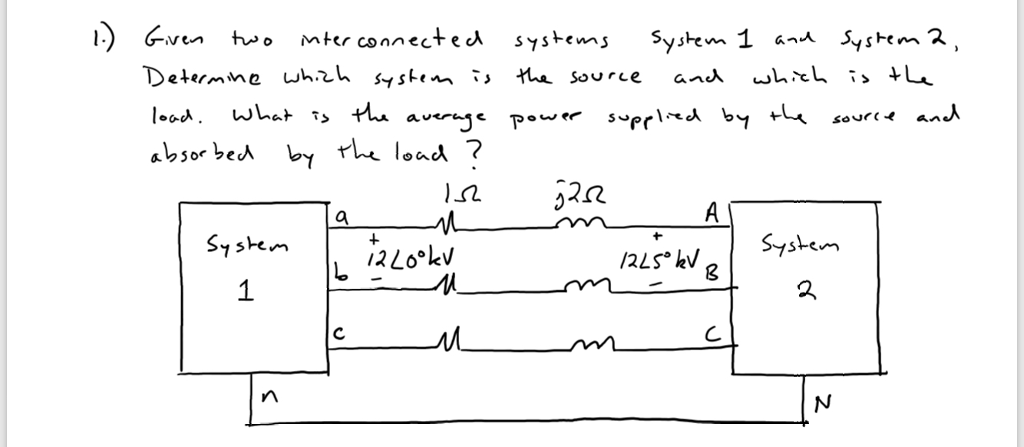 1.) Given two interconnected systems System 1 and System 2,
Determine which system is the source and which is the
load. What is the average power supplied by the source and
absorbed by the load?
1Ω j2Ω
a A
System + 12∠0°kV - + 12∠5°kV - System
b B
1 2
c C
n N